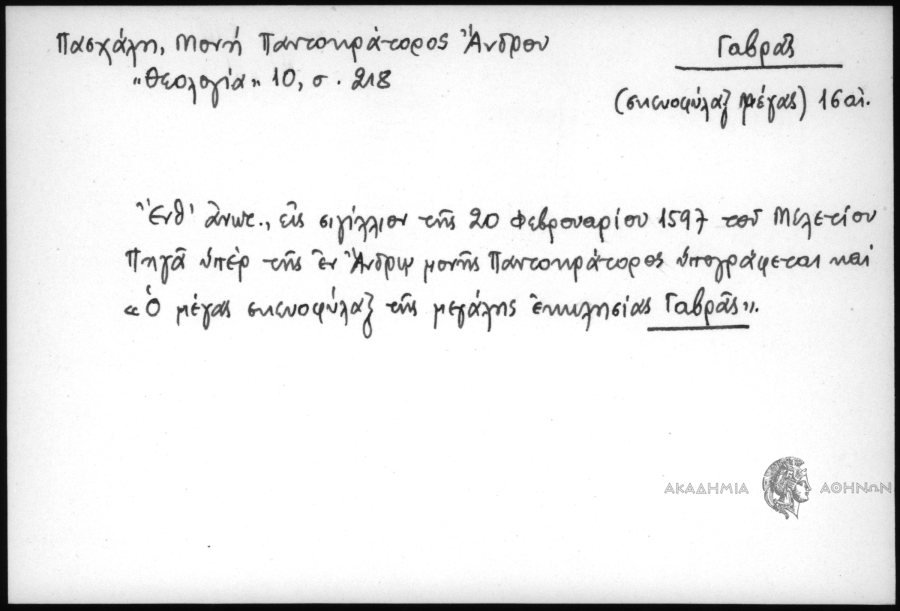 Πασχάλη, Μονή Παντοκράτορος Ἄνδρου
"Θεολογία" 10, σ. 218
Γαβρᾶς
(σκευοφύλαξ μέγας) 16 αἰ.
Ἔνθ' ἀνωτ., εἰς σιγίλλιον τῆς 20 Φεβρουαρίου 1597 τοῦ Μελετίου
Πηγᾶ ὑπὲρ τῆς ἐν Ἄνδρῳ μονῆς Παντοκράτορος ὑπογράφεται καὶ
«Ὁ μέγας σκευοφύλαξ τῆς μεγάλης ἐκκλησίας Γαβρᾶς».
ΑΚΑΔΗΜΙΑ ΑΘΗΝΩΝ